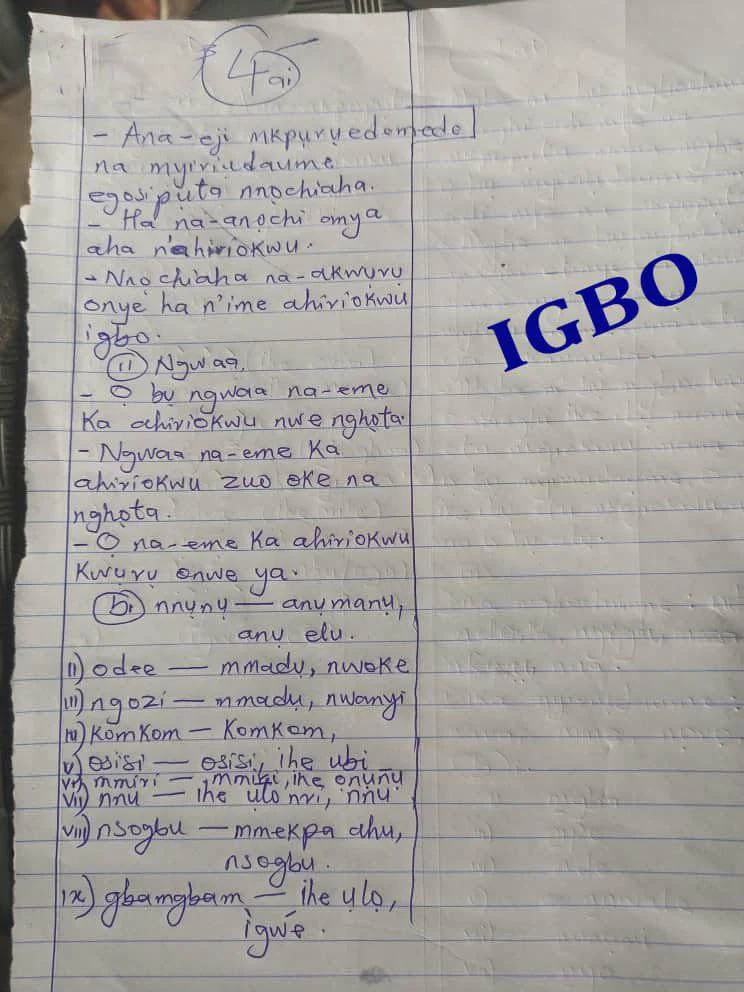 4ai
- Ana-eji mkpụrụedemede
na myiriụdaume
egosipụta nnọchiaha.
- Ha na-anọchi onya
aha n'ahiriokwu.
- Nnọchiaha na-akwụrụ
onye ha n'ime ahiriokwu
igbo.
IGBO
(ii) Ngwaa.
- Ọ bụ ngwaa na-eme
ka ahiriokwu nwe nghota.
- Ngwaa na-eme ka
ahiriokwu zuo oke na
nghọta.
- Ọ na-eme ka ahiriokwu
kwụrụ onwe ya.
bi nnụnụ — anụmanụ,
anụ elu.
ii) odee — mmadụ, nwoke
iii) ngozi — mmadụ, nwanyi
iv) komkom — komkom,
v) osisi — osisi, ihe ubi
vi) mmiri — mmiri, ihe ọnụnụ
vii) nnu — ihe ụlo nri, nnu
viii) nsogbu — mmekpa ahu,
nsogbu.
ix) gbamgbam — ihe ụlọ,
ìgwé.